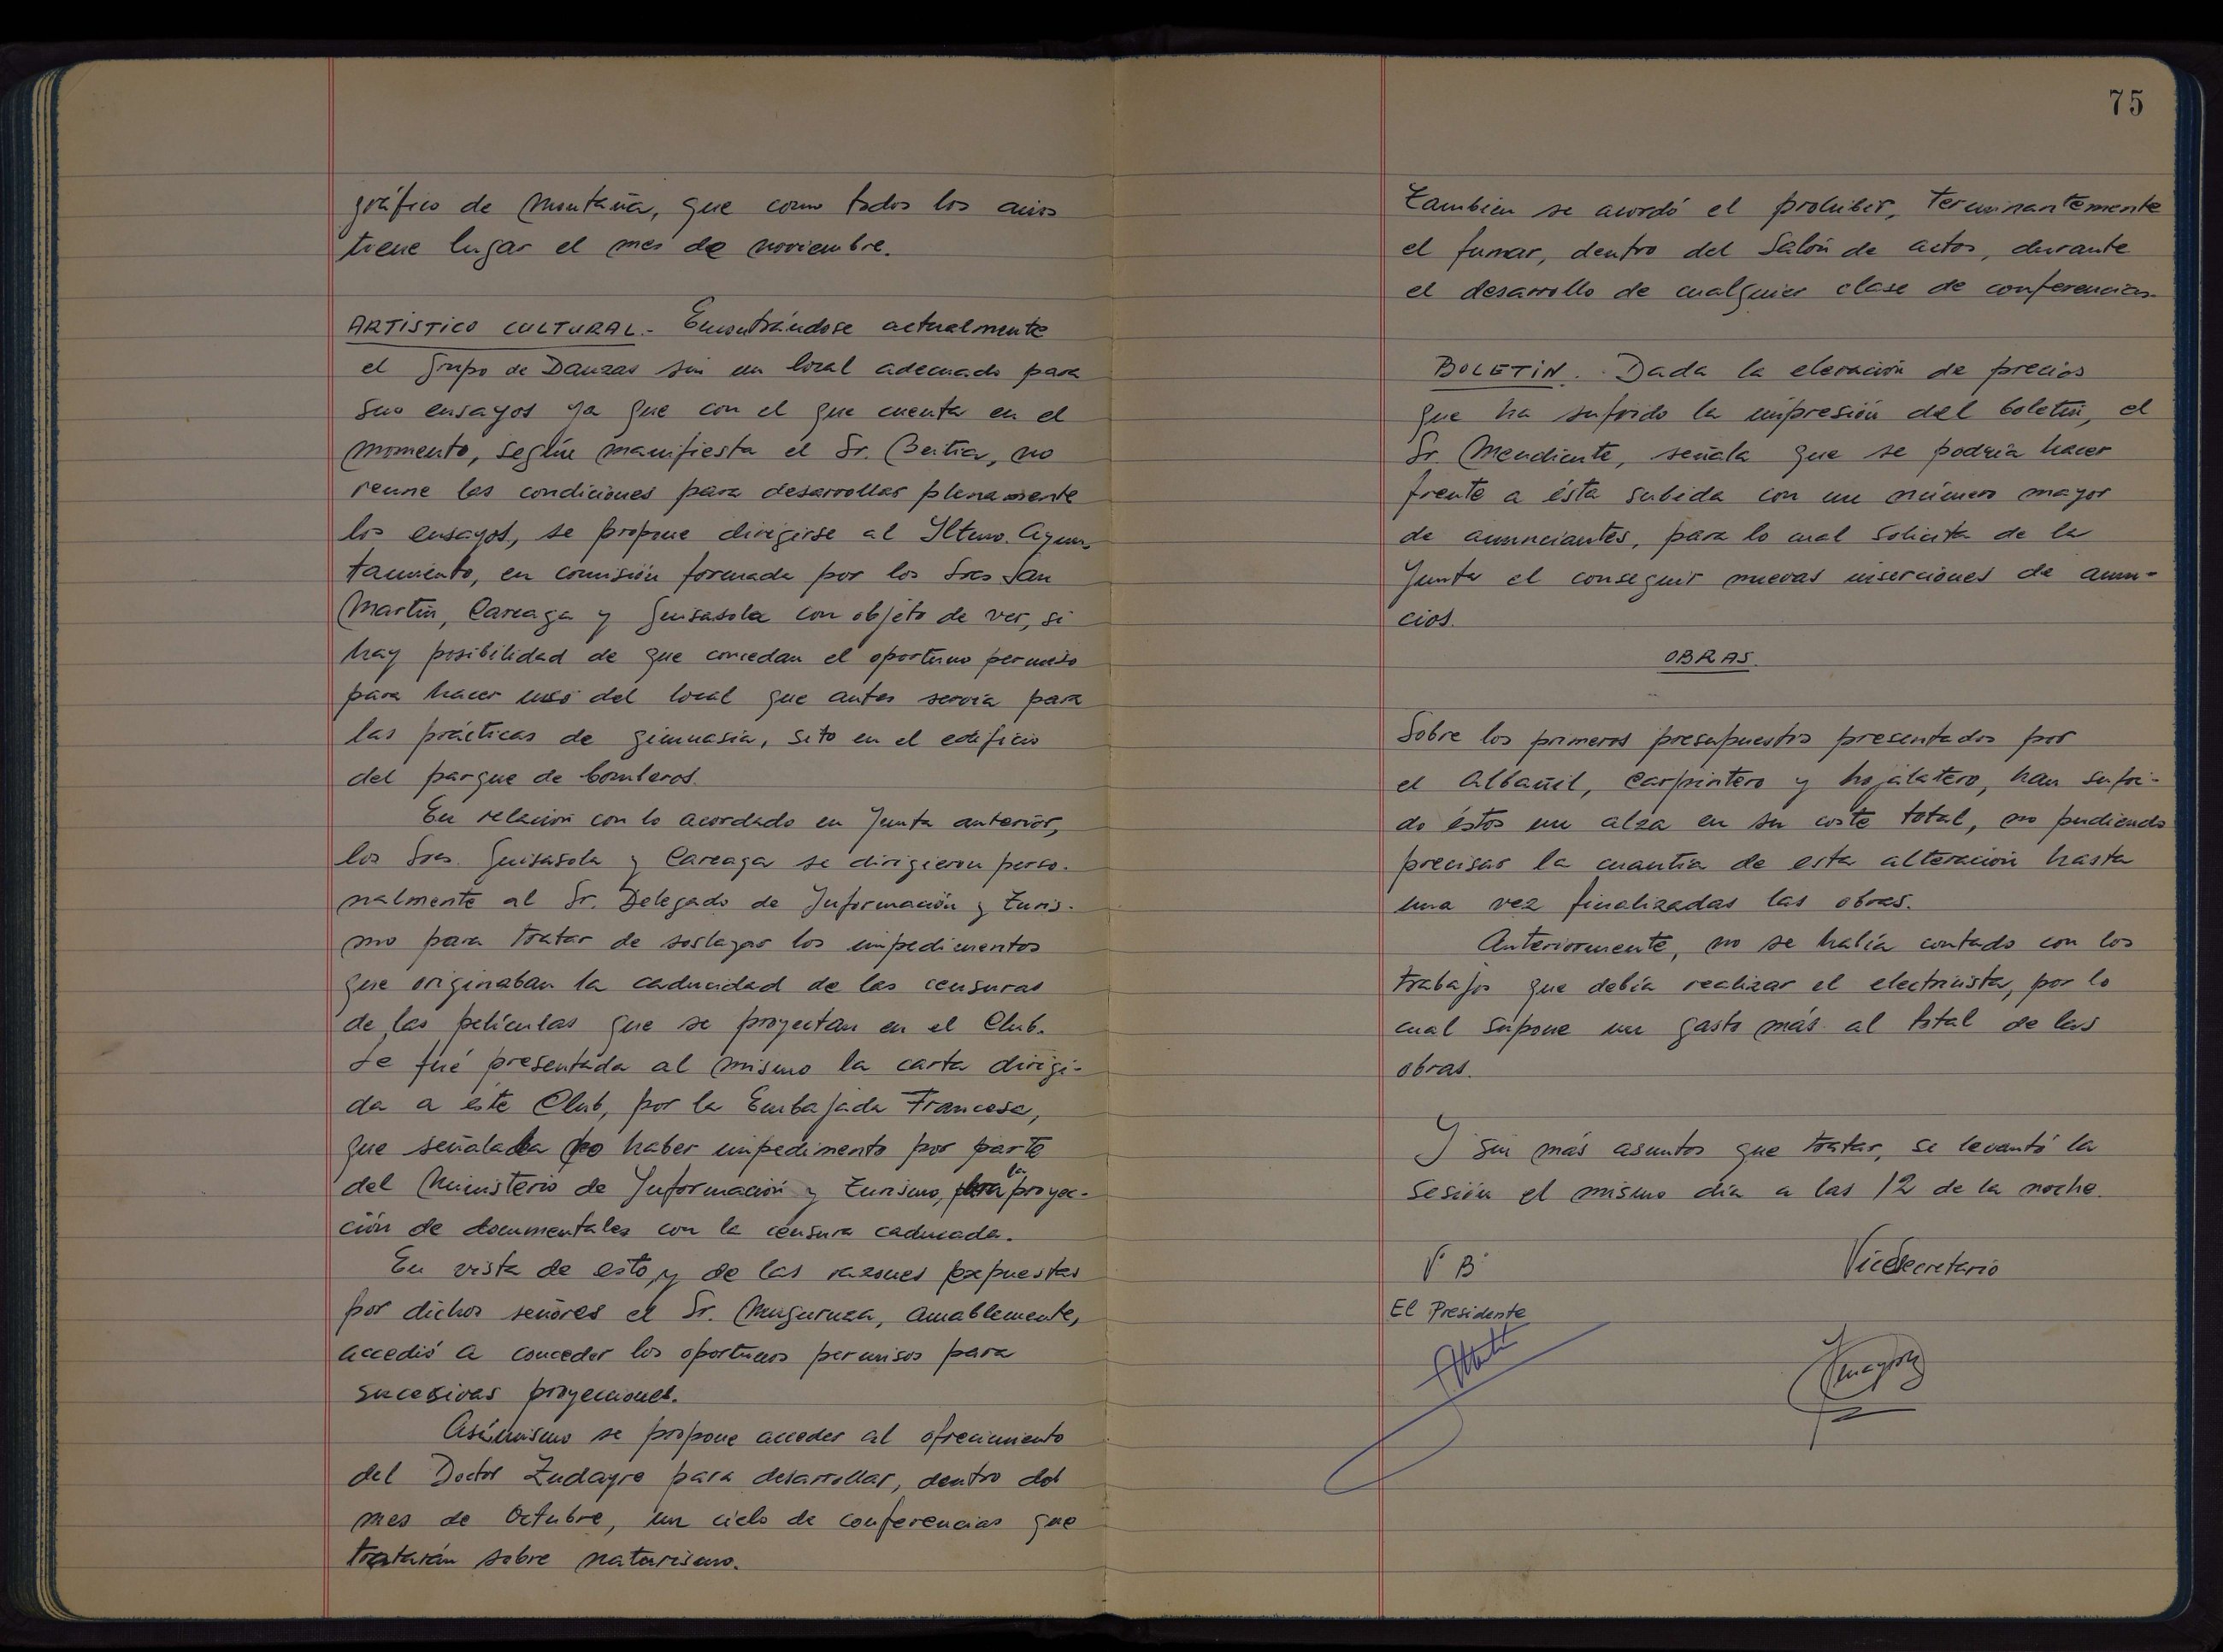 gráfico de Montaña, que como todos los años
tiene lugar el mes de noviembre.
ARTISTICO CULTURAL.- Encontrándose actualmente
el grupo de Danzas sin un local adecuado para
sus ensayos ya que con el que cuenta en el
momento, según manifiesta el Sr. Beitia, no
reune las condiciones para desarrollar plenamente
los ensayos, se propone dirigirse al Iltmo. Ayun-
tamiento, en comisión formada por los Sres San
Martín, Careaga y Guisasola con objeto de ver, si
hay posibilidad de que concedan el oportuno permiso
para hacer uso del local que antes servía para
las prácticas de gimnasia, sito en el edificio
del parque de bomberos.
En relación con lo acordado en Junta anterior,
los Sres. Guisasola y Careaga se dirigieron perso-
nalmente al Sr. Delegado de Información y Turis-
mo para tratar de soslayar los impedimentos
que originaban la caducidad de las censuras
de las películas que se proyectan en el Club.
Le fué presentada al mismo la carta dirigi-
da a éste Club, por la Embajada Francesa,
que señalaba no haber impedimento por parte
del Ministerio de Información y Turismo, para la proyec-
ción de documentales con la censura caducada.
En vista de esto y de las razones expuestas
por dichos señores el Sr. Muguruza, amablemente,
accedió a conceder los oportunos permisos para
sucesivas proyecciones.
Asímismo se propone acceder al ofrecimiento
del Doctor Zudayre para desarrollar, dentro del
mes de Octubre, un ciclo de conferencias que
tratarán sobre naturismo.
75
También se acordó el prohibir, terminantemente
el fumar, dentro del Salón de actos, durante
el desarrollo de cualquier clase de conferencias.
BOLETIN.- Dada la elevación de precios
que ha sufrido la impresión del boletín, el
Sr. Mendiente, señala que se podría hacer
frente a ésta subida con un número mayor
de anunciantes, para lo cual solicita de la
Junta el conseguir nuevas inserciones de anun-
cios.
OBRAS.
Sobre los primeros presupuestos presentados por
el Albañil, Carpintero y hojalatero, han sufri-
do éstos un alza en su coste total, no pudiendo
precisar la cuantía de esta alteración hasta
una vez finalizadas las obras.
Anteriormente, no se había contado con los
trabajos que debía realizar el electricista, por lo
cual supone un gasto más al total de las
obras.
Y sin más asuntos que tratar, se levantó la
Sesión el mismo día a las 12 de la noche.
Vº Bº
Vicesecretario
El Presidente